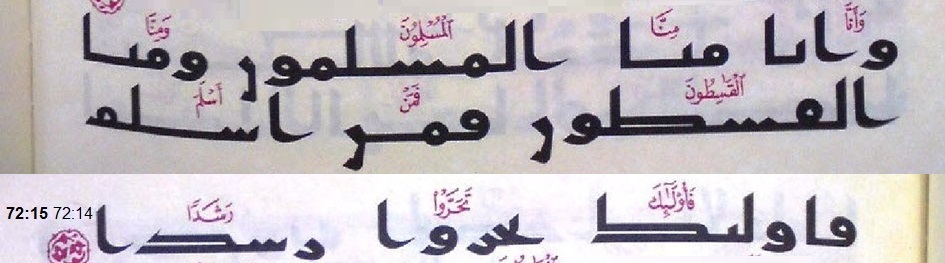 وَأَنَّا مِنَّا ٱلْمُسْلِمُونَ وَمِنَّا
وانا منا المسلمون ومنا
ٱلْقَٰسِطُونَ فَمَنْ أَسْلَمَ
القسطون فمن اسلم
فَأُو۟لَٰٓئِكَ تَحَرَّوْا۟ رَشَدًا
فاولئك تحروا رشدا
72:15 72:14